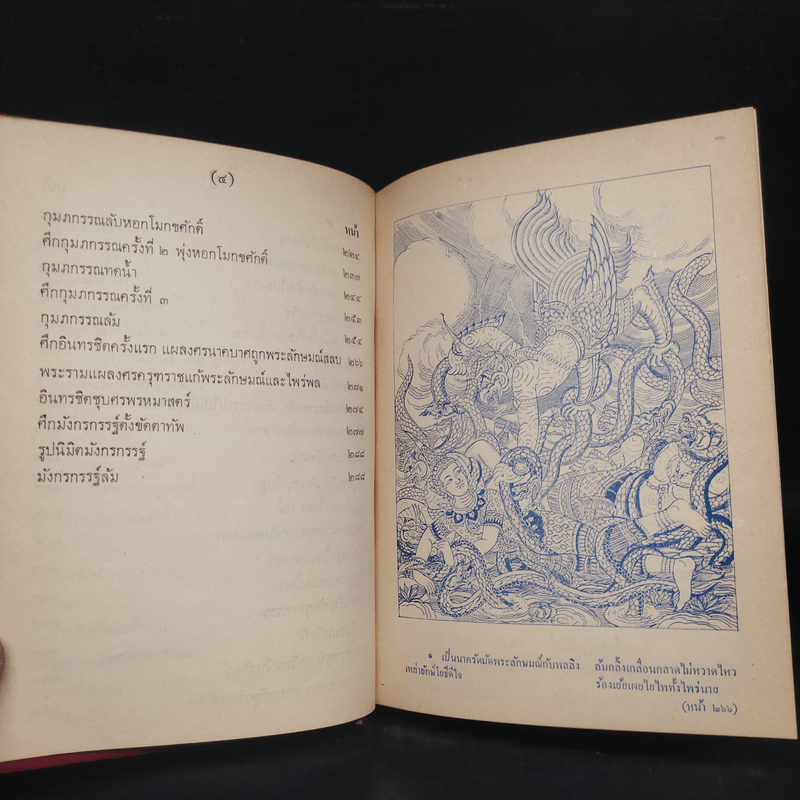 (๔)
หน้า
กุมภกรรณลับหอกโมกขศักดิ์ ๒๒๔
ศึกกุมภกรรณครั้งที่ ๒ พุ่งหอกโมกขศักดิ์ ๒๓๗
กุมภกรรณทดน้ำ ๒๔๔
ศึกกุมภกรรณครั้งที่ ๓ ๒๕๓
กุมภกรรณล้ม ๒๕๔
ศึกอินทรชิตครั้งแรก แผลงศรนาคบาศถูกพระลักษมณ์สลบ ๒๖๖
พระรามแผลงศรครุฑราชแก้พระลักษมณ์และไพร่พล ๒๗๑
อินทรชิตชุบศรพรหมาสตร์ ๒๗๔
ศึกมังกรกรรฐ์ตั้งขัดตาทัพ ๒๗๗
รูปนิมิตมังกรกรรฐ์ ๒๘๘
มังกรกรรฐ์ล้ม ๒๘๘
๏ เป็นนาครัดมัดพระลักษมณ์กับพลลิง ล้มกลิ้งเกลื่อนกลาดไม่หวาดไหว
เหล่ายักษ์โยธีดีใจ ร้องเย้ยเผยไยไพทั้งไพร่นาย
(หน้า ๒๖๖)